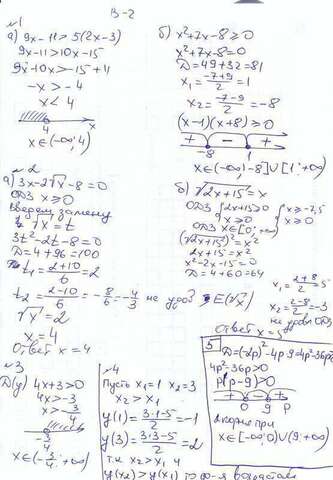 В-2
№1
а) 9x-11>5(2x-3)
9x-11>10x-15
9x-10x>-15+11
-x>-4
x<4
4 x
x∈(-∞;4)
б) x²+7x-8≥0
x²+7x-8=0
D=49+32=81
x₁=(-7+9)/2=1
x₂=(-7-9)/2=-8
(x-1)(x+8)≥0
+ - +
-8 1
x∈(-∞;-8]∪[1;+∞)
№2
а) 3x-2√x-8=0
ОДЗ x≥0
введем замену
√x=t
3t²-2t-8=0
D=4+96=100
t₁=(2+10)/6=2
t₂=(2-10)/6=-8/6=-4/3 не удов E(√x)
√x=2
x=4
Ответ x=4
б) √2x+15=x
ОДЗ {2x+15≥0 {x≥-7,5
x≥0 x≥0
ОДЗ x∈[0;+∞)
(√2x+15)²=x²
2x+15=x²
x²-2x-15=0
D=4+60=64
x₁=(2+8)/2=5
x₂=(2-8)/2=-3
не удов ОДЗ
Ответ x=5
№3
D(y) 4x+3>0
4x>-3
x>-3/4
-3/4
x∈(-3/4;+∞)
№4
Пусть x₁=1 x₂=3
x₂>x₁
y(1)=(3·1-5)/2=-1
y(3)=(3·3-5)/2=2
т.к x₂>x₁ и
y(x₂)>y(x₁) то ф-я возрастает
5
D=(-2p)²-4p·9=4p²-36p
4p²-36p>0
p(p-9)>0
+ - +
0 9 p
2 корня при
x∈(-∞;0)∪(9;+∞)